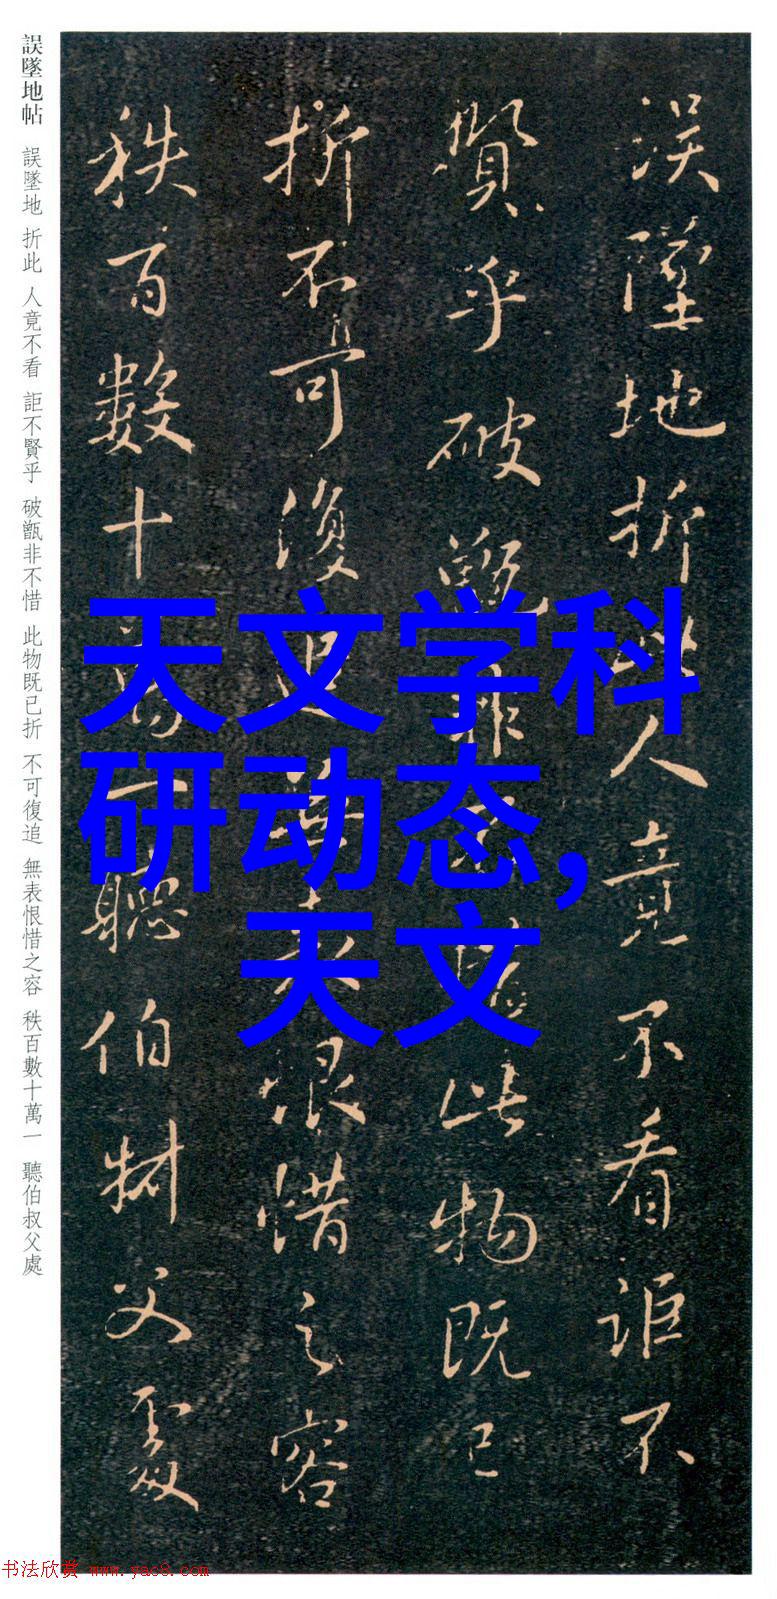 誤墜地帖 誤墜地 折此 人竟不看 詎不賢乎 破甑非不惜 此物既已折 不可復追 無表恨惜之容 秩百數十萬一 聽伯叔父處
誤墜地折此人竟不看詎不
賢乎破甑非不惜此物既已
折不可復追無表恨惜之容
秩百數十萬一聽伯叔父處
天文学科
研动态,
天文
书法欣赏 www.yac8.com